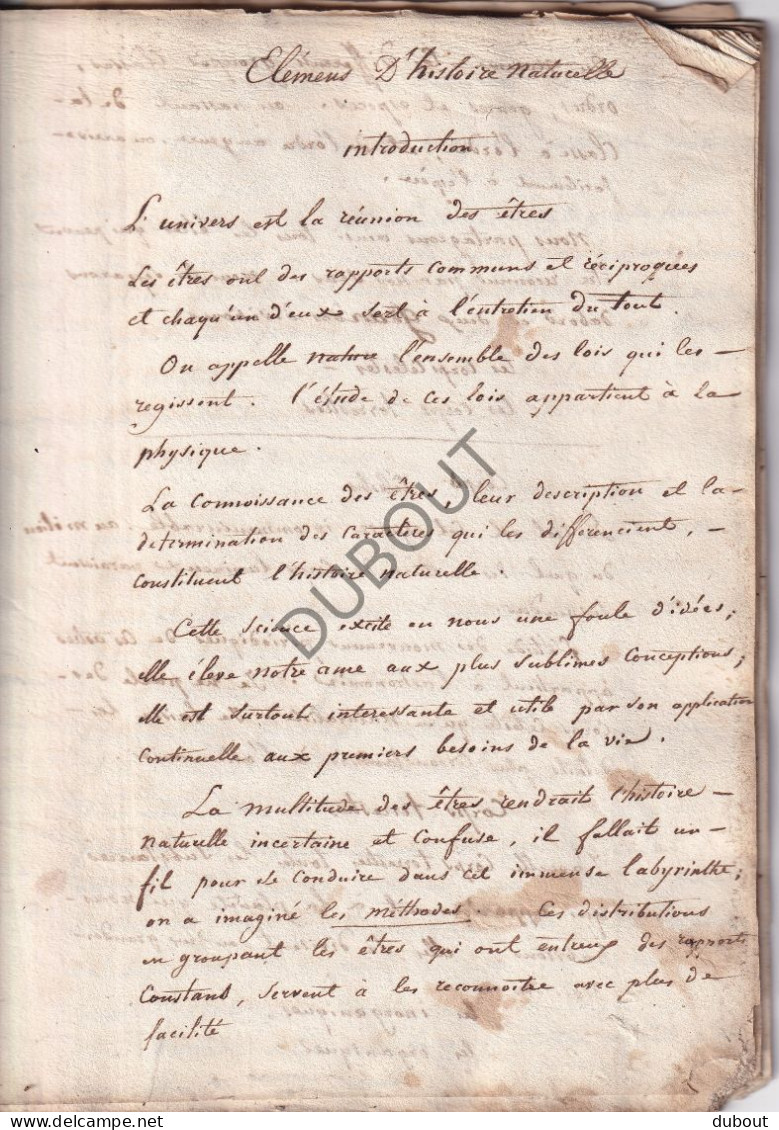 Elémens D'histoire naturelle
introduction
L'univers est la réunion des êtres
Les êtres ont des rapports communs et réciproques
et chaqu'un d'eux sert à l'entretien du tout.
On appelle nature l'ensemble des lois qui les -
regissent. l'étude de ces lois appartient à la
physique.
La connoissance des êtres, leur description et la -
determination des caractères qui les différencient, -
constituent l'histoire naturelle.
Cette science excite en nous une foule d'idées;
elle éleve notre ame aux plus sublimes conceptions;
elle est surtout interessante et utile par son application
continuelle aux premiers besoins de la vie.
La multitude des êtres rendrait l'histoire -
naturelle incertaine et confuse, il fallait un -
fil pour se conduire dans cet immense labyrinthe;
on a imaginé les méthodes. Ces distributions
en groupant les êtres qui ont entreux des rapports
constans, servent à les reconnoitre avec plus de
facilité
DUBOUT
delcampe.net
dubout